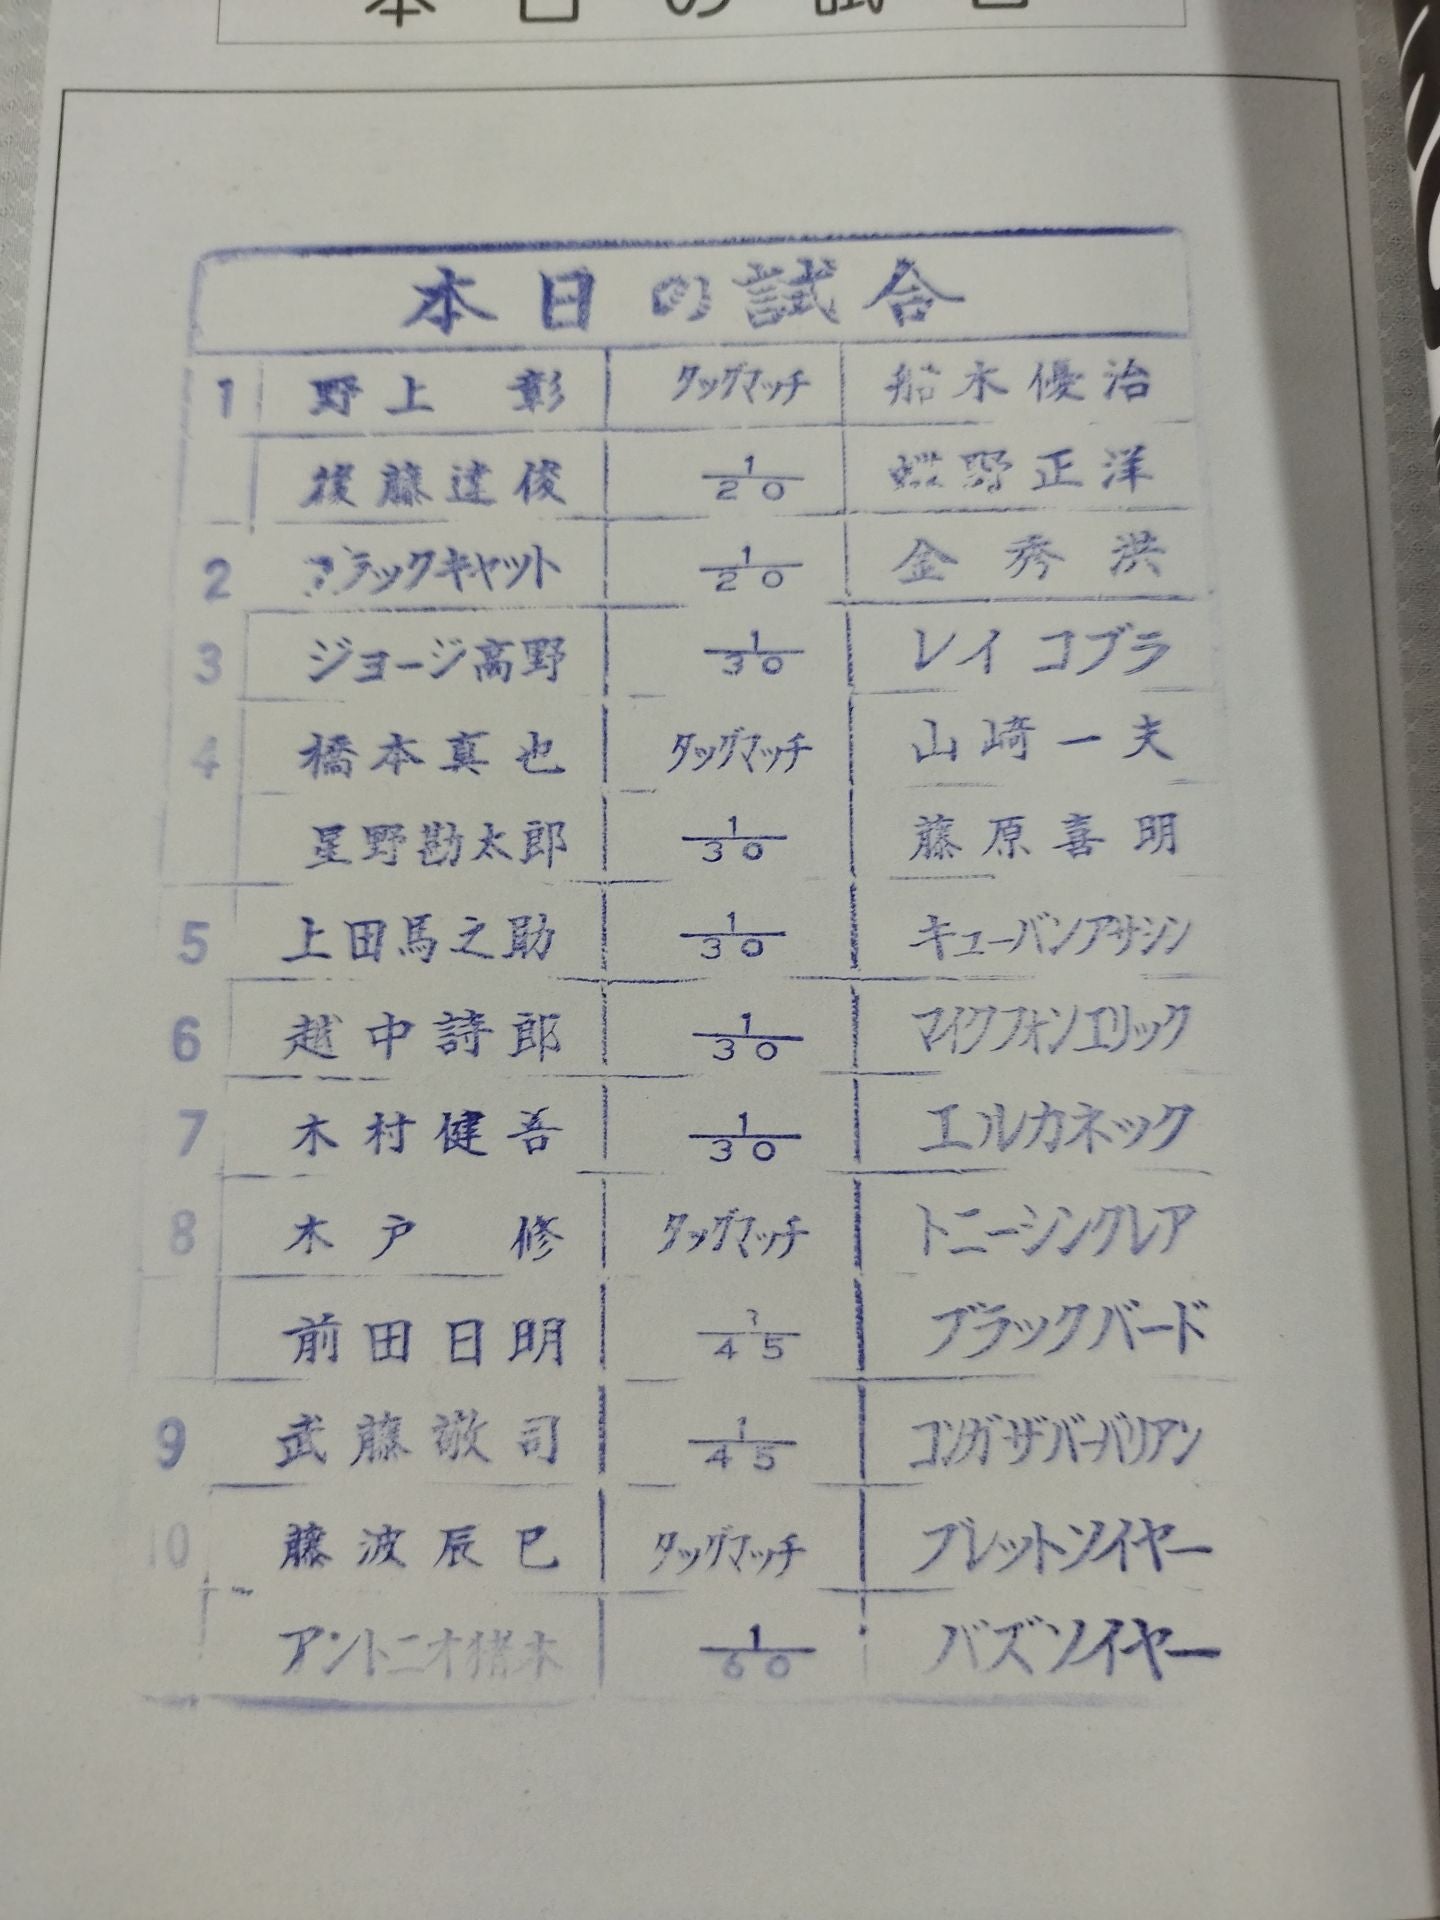 本日の試合
本日の試合
1 野上 彰 タッグマッチ 船木優治
後藤達俊 1/20 蝶野正洋
2 ブラックキャット 1/20 金秀洪
3 ジョージ高野 1/30 レイ コブラ
4 橋本真也 タッグマッチ 山崎一夫
星野勘太郎 1/30 藤原喜明
5 上田馬之助 1/30 キューバンアサシン
6 越中詩郎 1/30 マイクフォンエリック
7 木村健吾 1/30 エルカネック
8 木戸 修 タッグマッチ トニーシンクレア
前田日明 1/45 ブラックバード
9 武藤敬司 1/45 コンガザバーバリアン
10 藤波辰巳 タッグマッチ ブレットソイヤー
アントニオ猪木 1/60 バズソイヤー